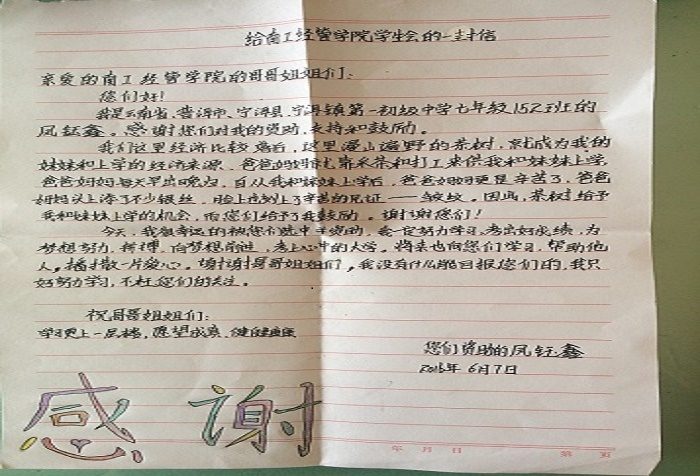 给南工经管学院学生会的一封信
亲爱的南工经管学院的哥哥姐姐们:
您们好!
我是云南省、普洱市、宁洱县、宁洱镇第一初级中学七年级152班的
凤钰鑫。感谢您们对我的资助、支持和鼓励。
我们这里经济比较落后,这里漫山遍野的茶树,就成为我的
妹妹和上学的经济来源。爸爸妈妈就靠采茶和打工来供我和妹妹上学,
爸爸妈妈每天早出晚归,自从我和妹妹上学后,爸爸妈妈更是辛苦了,爸爸
妈妈头上添了不少银丝,脸上也刻上了辛苦的见证——皱纹。因此,茶树给予
我和妹妹上学的机会,而您们给予了我鼓励。谢谢您们!
今天,我很幸运的被您们选中了资助,我一定努力学习,考出好成绩,为
梦想努力、拼搏,向梦想前进,考上心中的大学。将来也向您们学习,帮助他
人。播撒一片爱心。谢谢哥哥姐姐们,我没有什么能回报您们的,我只
好努力学习,不枉您们的关注。
祝哥哥姐姐们:
学习更上一层楼,愿望成真,健健康康
您们资助的凤钰鑫
2016年6月7日
感谢
年 月 日 第 页